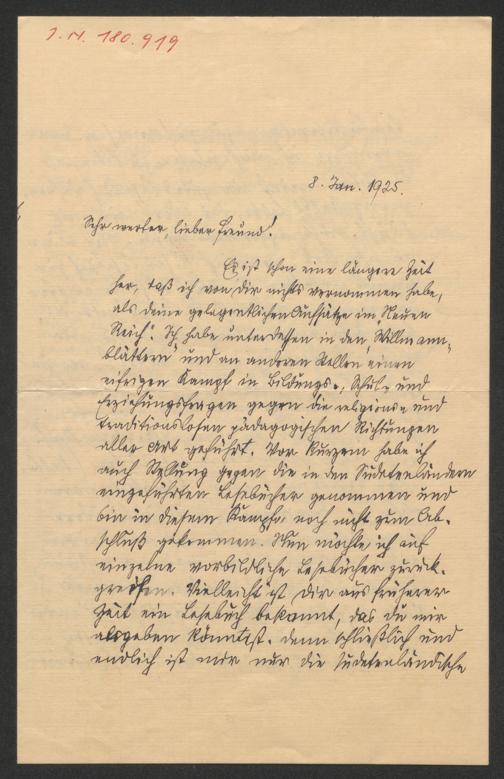 J.N. 180.919
8. Jan. 1925.
Sehr werter, lieber Freund!
Es ist schon eine längere Zeit
her, daß ich von Dir nichts vernommen habe,
als deine gelegentlichen Aufsätze im „Neuen
Reich“. Ich habe unterdessen in den „Willmann-
blättern“ und an anderen Stellen einen
eifrigen Kampf in Bildungs-, Schul- und
Erziehungsfragen gegen die religions- und
traditionslosen pädagogischen Richtungen
aller Art geführt. Vor kurzem habe ich
auch Stellung gegen die in den Sudetenländern
eingeführten Lesebücher genommen und
bin in diesem Kampfe noch nicht zum Ab-
schluß gekommen. Nun möchte ich auf
einzelne vorbildliche Lesebücher zurück-
greifen. Vielleicht ist Dir aus früherer
Zeit ein Lesebuch bekannt, das Du mir
angeben könntest. Denn schließlich und
endlich ist mir nur die sudetenländische